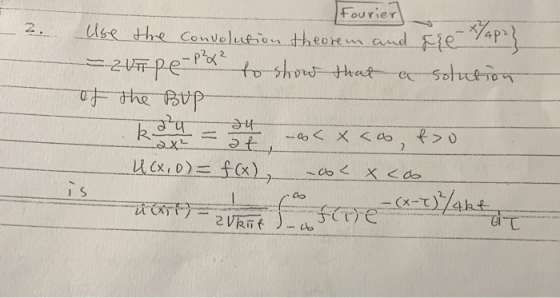 Fourier
2. Use the convolution theorem and F{e^{-x²/4p²}}
= 2√π p e^{-p²α²} to show that a solution
of the BVP
k ∂²u/∂x² = ∂u/∂t, -∞ < x < ∞, t > 0
u(x,0) = f(x), -∞ < x < ∞
is
u(x,t) = 1/(2√kπt) ∫_{-∞}^{∞} f(τ) e^{-(x-τ)²/4kt} dτ